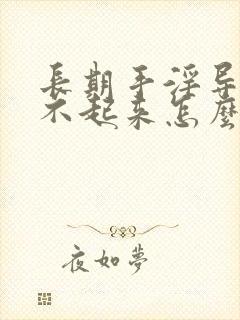 長期手淫导
不起来怎麼
夜如夢